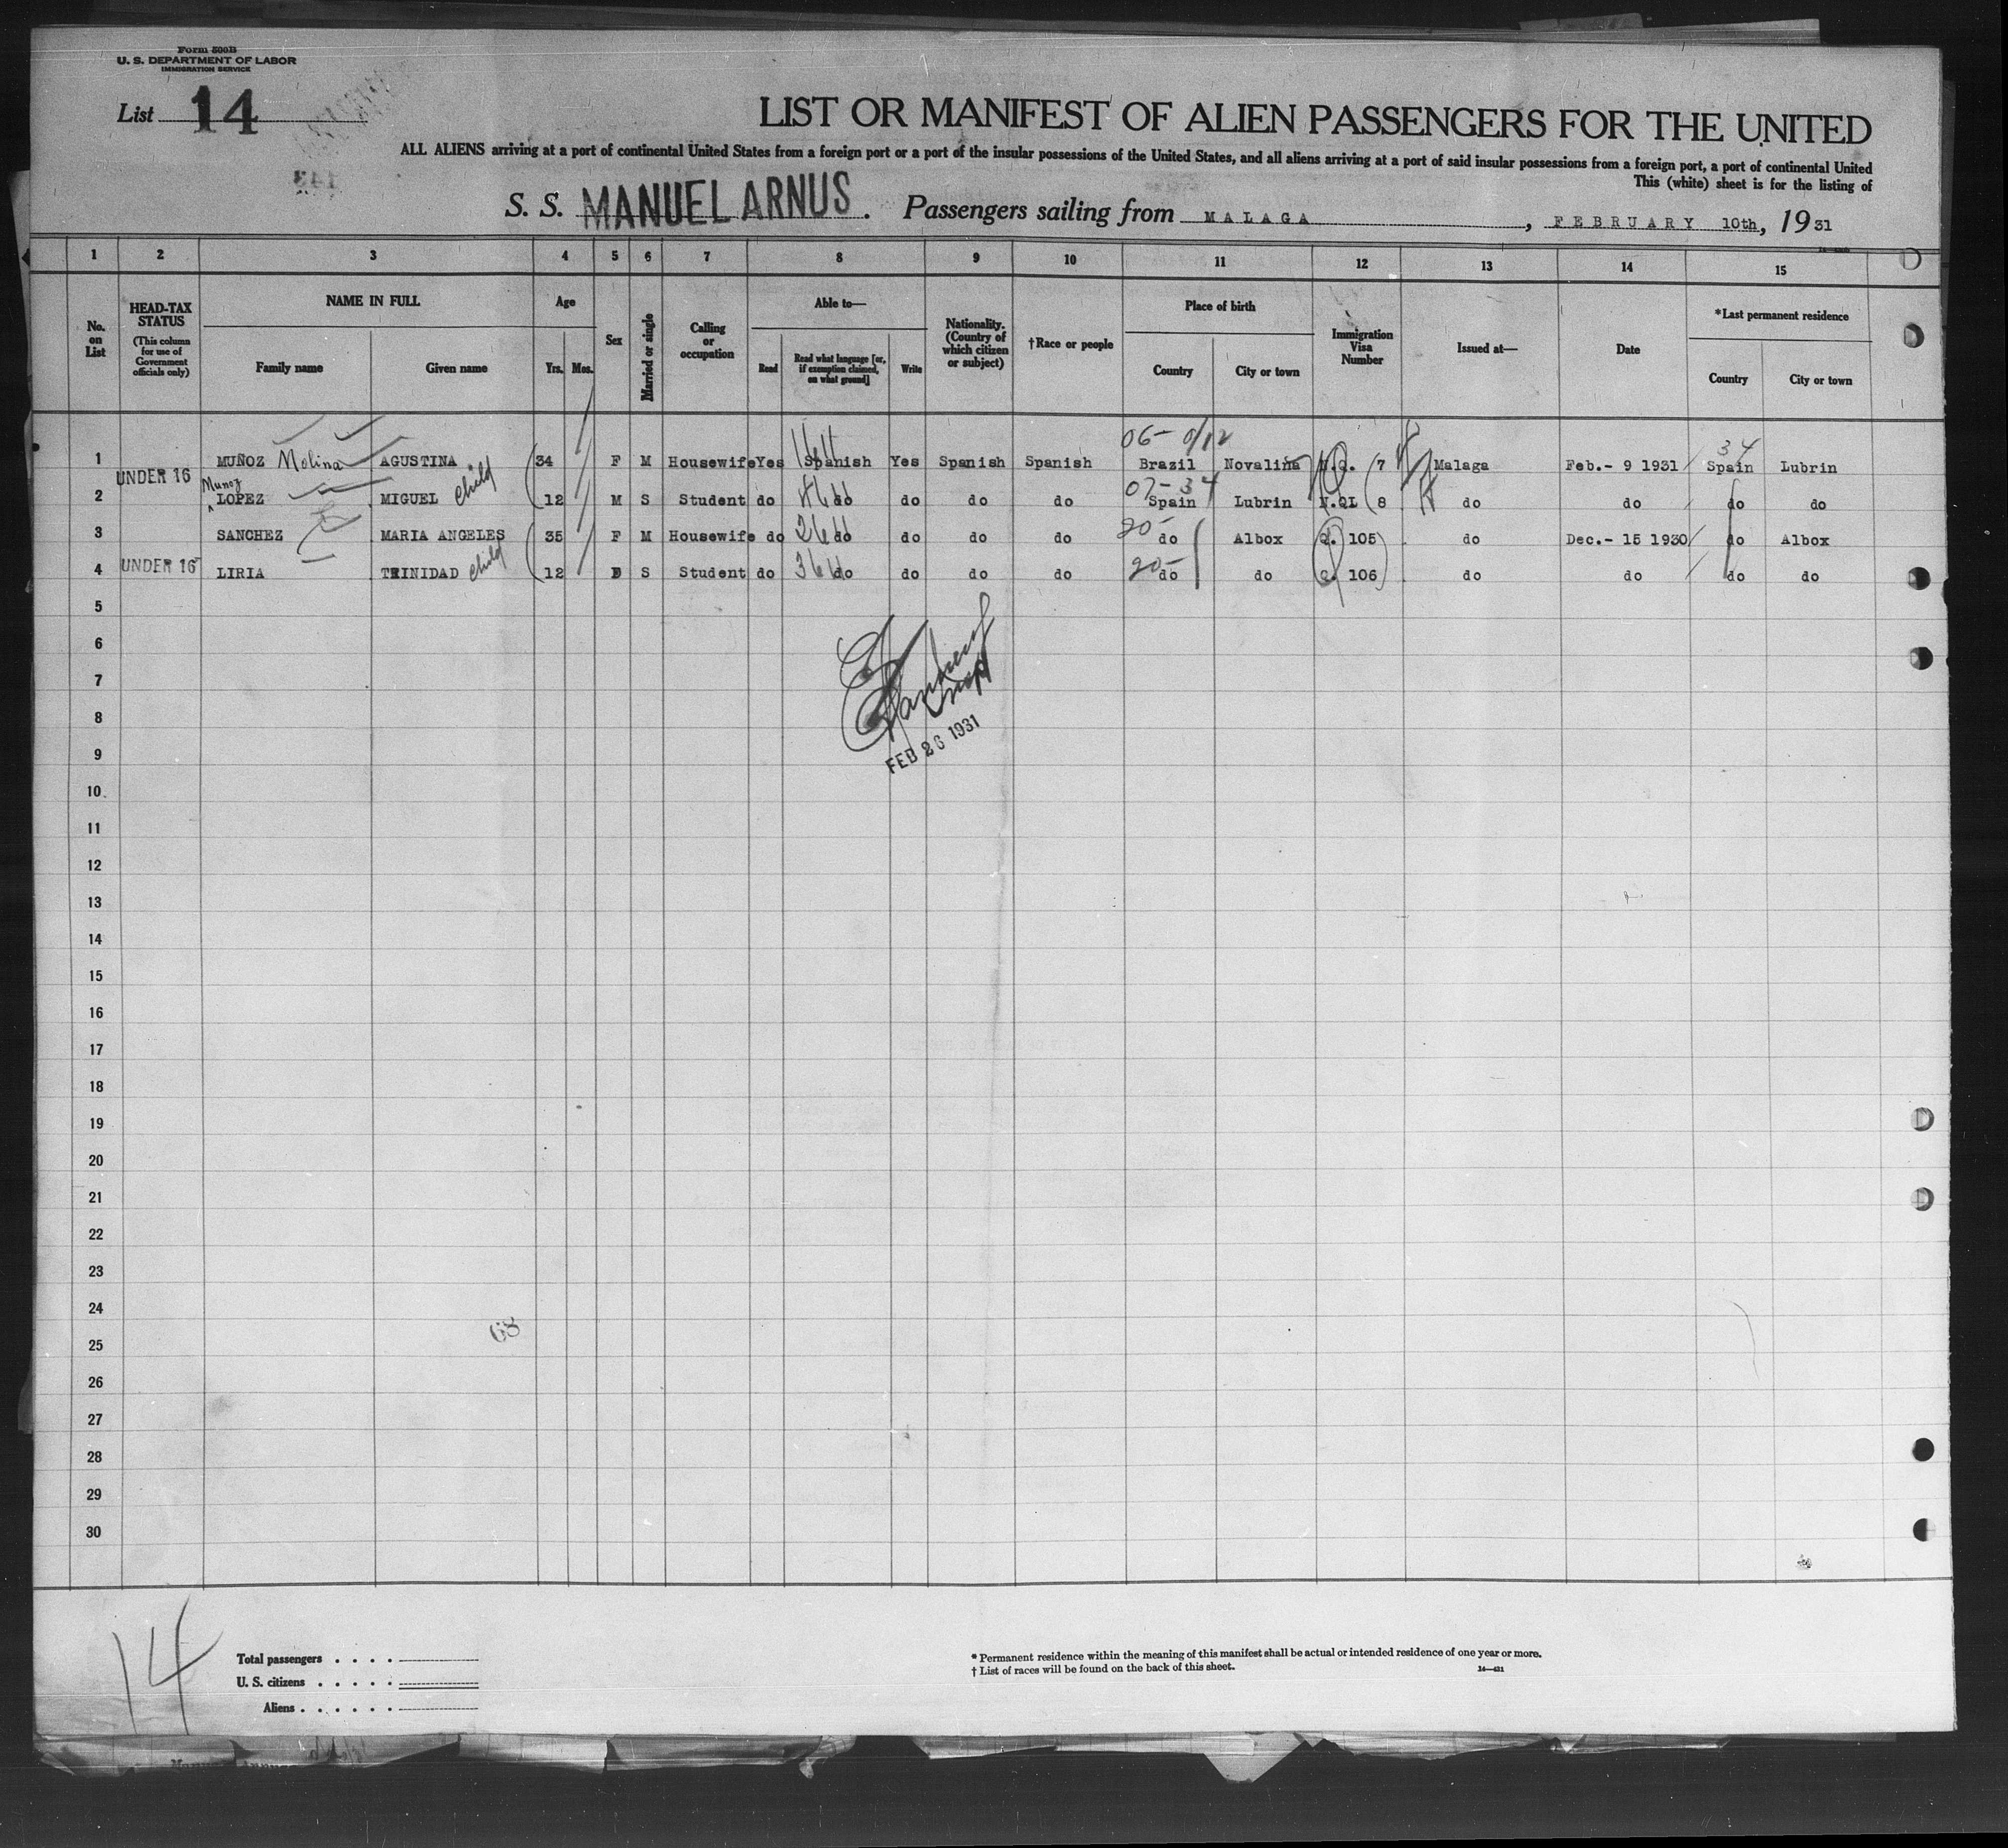 Form 500B
U. S. DEPARTMENT OF LABOR
IMMIGRATION SERVICE
List 14
LIST OR MANIFEST OF ALIEN PASSENGERS FOR THE UNITED
ALL ALIENS arriving at a port of continental United States from a foreign port or a port of the insular possessions of the United States, and all aliens arriving at a port of said insular possessions from a foreign port, a port of continental United
This (white) sheet is for the listing of
S. S. MANUEL ARNUS. Passengers sailing from MALAGA, FEBRUARY 10th, 1931
1 2 3 4 5 6 7 8 9 10 11 12 13 14 15
No. on List
HEAD-TAX STATUS
(This column for use of Government officials only)
NAME IN FULL
Family name
Given name
Age
Yrs. Mos.
Sex
Married or single
Calling or occupation
Able to—
Read
Read what language [or, if exemption claimed, on what ground]
Write
Nationality. (Country of which citizen or subject)
†Race or people
Place of birth
Country
City or town
Immigration Visa Number
Issued at—
Date
*Last permanent residence
Country
City or town
06- 34
1 MUÑOZ Molina AGUSTINA 34 F M Housewife Yes Spanish Yes Spanish Spanish Brazil Novalina N.Q. 7 Malaga Feb.- 9 1931 Spain Lubrin
UNDER 16 Munoz 07- 34
2 LOPEZ MIGUEL child 12 M S Student do do do do do Spain Lubrin 8 do do do do
20-
3 SANCHEZ MARIA ANGELES 35 F M Housewife do do do do do do Albox Q. 105 do Dec.- 15 1930 do Albox
UNDER 16 20-
4 LIRIA TRINIDAD child 12 S Student do do do do do do do Q. 106 do do do do
5
6
7
8
FEB 26 1931
9
10
11
12
13
14
15
16
17
18
19
20
21
22
23
24
68
25
26
27
28
29
30
14
Total passengers
U. S. citizens
Aliens
* Permanent residence within the meaning of this manifest shall be actual or intended residence of one year or more.
† List of races will be found on the back of this sheet.
14—431